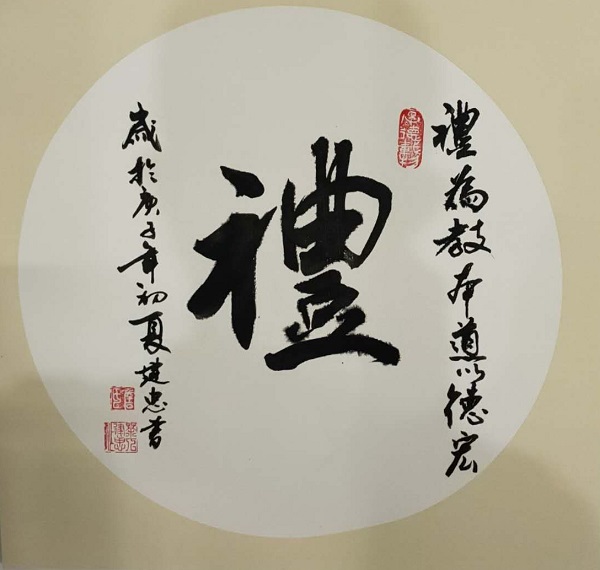 禮為教本道以德宏
禮
歲於庚子年初夏建忠書